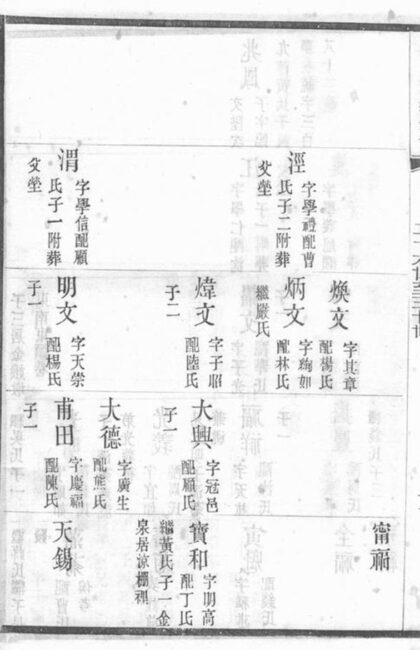 涇
字學禮配曹
氏子二附葬
父塋
渭
字學信配顧
氏子一附葬
父塋
煥文
字其章
配楊氏
炳文
字絢如
配林氏
繼嚴氏
煒文
字子昭
配陸氏
子二
明文
字天崇
配楊氏
子一
大興
字冠邑
配顧氏
子一
大德
字廣生
配熊氏
甫田
字慶福
配陳氏
子一
甯福
寶和
字朋高
配丁氏
繼黃氏子一金
泉居涼棚裡
天錫